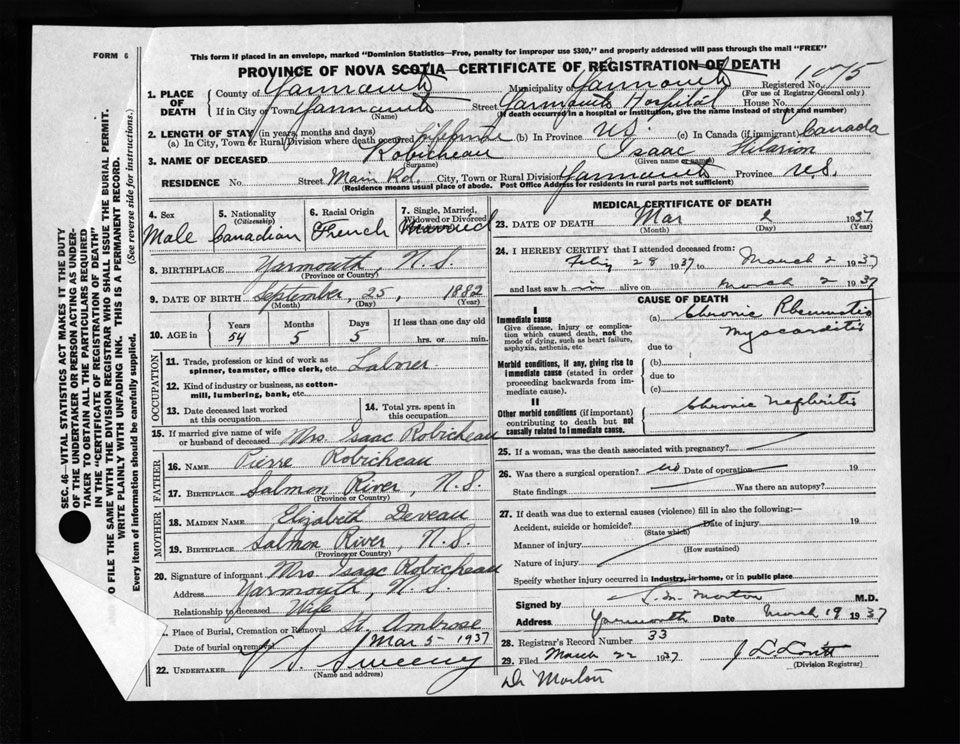 FORM 6
This form if placed in an envelope, marked "Dominion Statistics—Free, penalty for improper use $300," and properly addressed will pass through the mail "FREE"
PROVINCE OF NOVA SCOTIA—CERTIFICATE OF REGISTRATION OF DEATH
1. PLACE OF DEATH
County of Yarmouth Municipality of Yarmouth Registered No. 1075
(For use of Registrar General only)
If in City or Town Yarmouth Street Yarmouth Hospital House No.
(Name) (If death occurred in a hospital or institution, give the name instead of street and number)
2. LENGTH OF STAY (in years, months and days)
(a) In City, Town or Rural Division where death occurred lifetime (b) In Province (c) In Canada (if immigrant) Canada
3. NAME OF DECEASED Robicheau Isaac Hilarion
(Surname) (Given name or names)
RESIDENCE No. Street Main Rd. City, Town or Rural Division Yarmouth Province N.S.
(Residence means usual place of abode. Post Office Address for residents in rural parts not sufficient)
4. Sex Male
5. Nationality (Citizenship) Canadian
6. Racial Origin French
7. Single, Married, Widowed or Divorced Married
8. BIRTHPLACE Yarmouth, N.S.
(Province or Country)
9. DATE OF BIRTH September, 25, 1882
(Month) (Day) (Year)
10. AGE in Years 54 Months 5 Days 5 If less than one day old hrs. or min.
OCCUPATION
11. Trade, profession or kind of work as spinner, teamster, office clerk, etc. Laborer
12. Kind of industry or business, as cotton-mill, lumbering, bank, etc.
13. Date deceased last worked at this occupation
14. Total yrs. spent in this occupation
15. If married give name of wife or husband of deceased Mrs. Isaac Robicheau
FATHER
16. NAME Pierre Robicheau
17. BIRTHPLACE Salmon River, N.S.
(Province or Country)
MOTHER
18. MAIDEN NAME Elizabeth Deveau
19. BIRTHPLACE Salmon River, N.S.
(Province or Country)
20. Signature of informant Mrs. Isaac Robicheau
Address Yarmouth, N.S.
Relationship to deceased Wife
Place of Burial, Cremation or Removal St. Ambrose
Date of burial or removal Mar 5 1937
22. UNDERTAKER V. S. Sweeny
(Name and address)
MEDICAL CERTIFICATE OF DEATH
23. DATE OF DEATH Mar 2 1937
(Month) (Day) (Year)
24. I HEREBY CERTIFY that I attended deceased from:
Feby 28 1937 to March 2 1937
and last saw h im alive on March 2 1937
CAUSE OF DEATH
I
Immediate cause
Give disease, injury or complication which caused death, not the mode of dying, such as heart failure, asphyxia, asthenia, etc
(a) Chronic Rheumatic Myocarditis
due to
Morbid conditions, if any, giving rise to immediate cause (stated in order proceeding backwards from immediate cause).
(b)
due to
(c)
II
Other morbid conditions (if important) contributing to death but not causally related to immediate cause.
Chronic Nephritis
25. If a woman, was the death associated with pregnancy?
26. Was there a surgical operation? no Date of operation 19
State findings Was there an autopsy?
27. If death was due to external causes (violence) fill in also the following:—
Accident, suicide or homicide? Date of injury 19
(State which)
Manner of injury
(How sustained)
Nature of injury
Specify whether injury occurred in Industry, in home, or in public place
Signed by S. W. Morton M.D.
Address Yarmouth Date March 19 1937
28. Registrar's Record Number 33
29. Filed March 22 1937 J L Lovitt
(Division Registrar)
Dr Morton
SEC. 46—VITAL STATISTICS ACT MAKES IT THE DUTY
OF THE UNDERTAKER OR PERSON ACTING AS UNDER-
TAKER TO OBTAIN ALL THE PARTICULARS REQUIRED
IN THE "CERTIFICATE OF REGISTRATION OF DEATH"
O FILE THE SAME WITH THE DIVISION REGISTRAR WHO SHALL ISSUE THE BURIAL PERMIT.
WRITE PLAINLY WITH UNFADING INK. THIS IS A PERMANENT RECORD.
Every item of information should be carefully supplied. (See reverse side for instructions.)